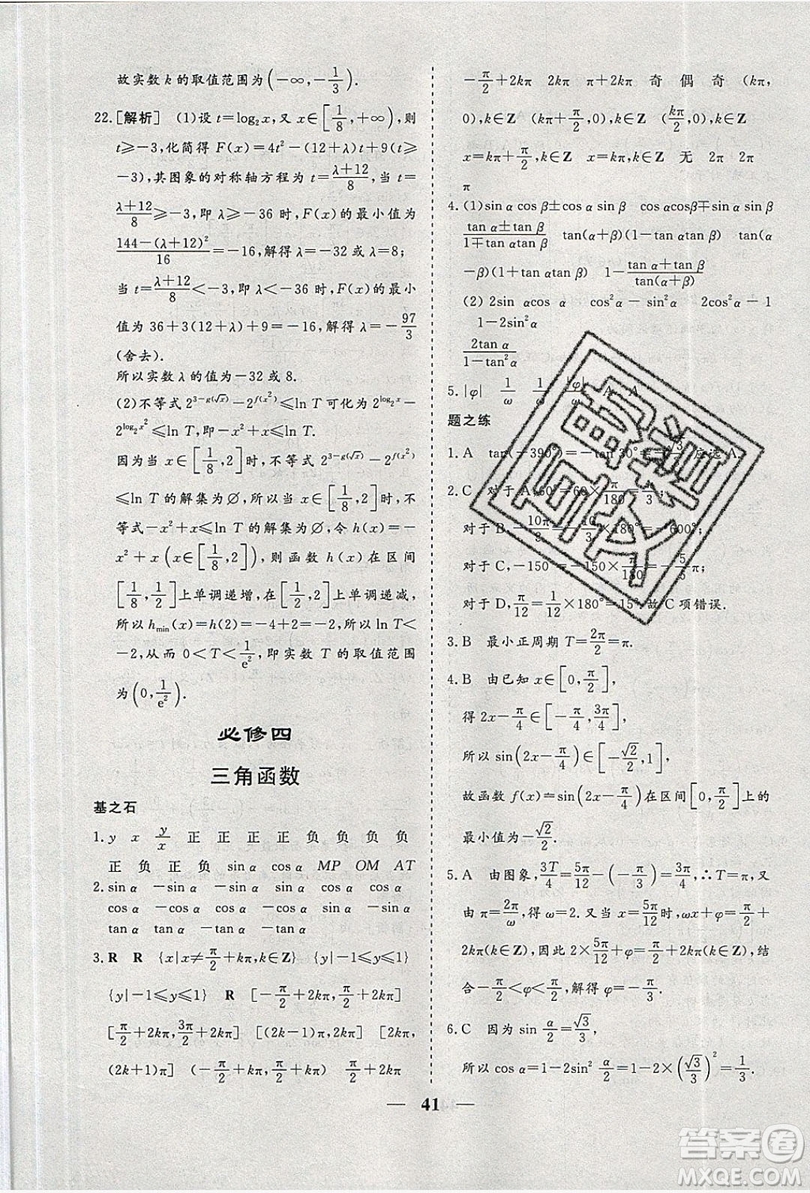 故实数 k 的取值范围为(-∞,-1/3).
22.[解析] (1)设 t=log₂x,又 x∈[1/8,+∞),则
t≥-3,化简得 F(x)=4t²-(12+λ)t+9(t≥
-3),其图象的对称轴方程为 t=(λ+12)/8,当
(λ+12)/8≥-3,即 λ≥-36 时,F(x)的最小值为
(144-(λ+12)²)/16=-16,解得 λ=-32 或 λ=8;
当 t=(λ+12)/8<-3,即 λ<-36 时,F(x)的最小
值为 36+3(12+λ)+9=-16,解得 λ=-97/3
(舍去).
所以实数 λ 的值为-32 或 8.
(2)不等式 2^(3-g(√x))-2^(f(x²))≤ln T 可化为 2^(log₂x²)-
2^(log₂x³)≤ln T.
因为当 x∈[1/8,2]时,不等式 2^(3-g(√x))-2^(f(x²))
≤ln T 的解集为∅,所以当 x∈[1/8,2]时,不
等式-x³+x²≤ln T 的解集为∅,令 h(x)=-
x³+x²(x∈[1/8,2]),则函数 h(x)在区间
[1/8,2/3]上单调递增,在[2/3,2]上单调递减,
所以 h_min(x)=h(2)=-4,所以 ln T<-4<
为(0,1/e²).
必修四
三角函数
基之石
1.y x y/x 正 正 正 正 负 负 负 负
正 负 正 负 sin α cos α MP OM AT
2.sin α -sin α -sin α sin α cos α cos α
cos α -cos α -cos α cos α sin α -sin α
tan α tan α -tan α -tan α
3.R R {x|x≠π/2+kπ,k∈Z} {y|-1≤y≤1}
{y|-1≤y≤1} R [-π/2+2kπ,π/2+2kπ]
[π/2+2kπ,3π/2+2kπ] [(2k-1)π,2kπ] [2kπ,
(2k+1)π] (-π/2+kπ,π/2+kπ) π/2+2kπ
-π/2+2kπ 2kπ π+2kπ 奇 偶 奇 (kπ,
0),k∈Z (kπ+π/2,0),k∈Z (kπ/2,0),k∈Z
x=kπ+π/2,k∈Z x=kπ,k∈Z 无 2π 2π
π
4.(1)sin α cos β±cos α sin β cos α cos β∓sin α sin β
(tan α±tan β)/(1∓tan αtan β) tan(α+β)(1-tan αtan β) tan(α
-β)(1+tan αtan β) 1-(tan α+tan β)/tan(α+β)
(2) 2sin αcos α cos²α-sin²α 2cos²α-1
1-2sin²α
2tan α/(1-tan²α)
5.|φ| 1/ω
题之练
1.A
2.C
3.B 最小正周期 T=2π/2=π.
4.B 由已知 x∈[0,π/2],
得 2x-π/4∈[-π/4,3π/4],
所以 sin(2x-π/4)∈[-√2/2,1],
故函数 f(x)=sin(2x-π/4)在区间[0,π/2]上的
最小值为-√2/2.
5.A 由图象,3T/4=5π/12-(-π/3),∴T=π,又
由 π=2π/ω得 ω=2,当 x=5π/12时,ωx+φ=π/2+
2kπ(k∈Z),即 2×5π/12+φ=π/2+2kπ(k∈Z),结
合-π/2<φ<π/2,解得 φ=-π/3.
6.C 因为 sin α/2=√3/3,
所以 cos α=1-2sin²α/2=1-2×(√3/3)²=1/3.
41
答案圈
MXQE.COM